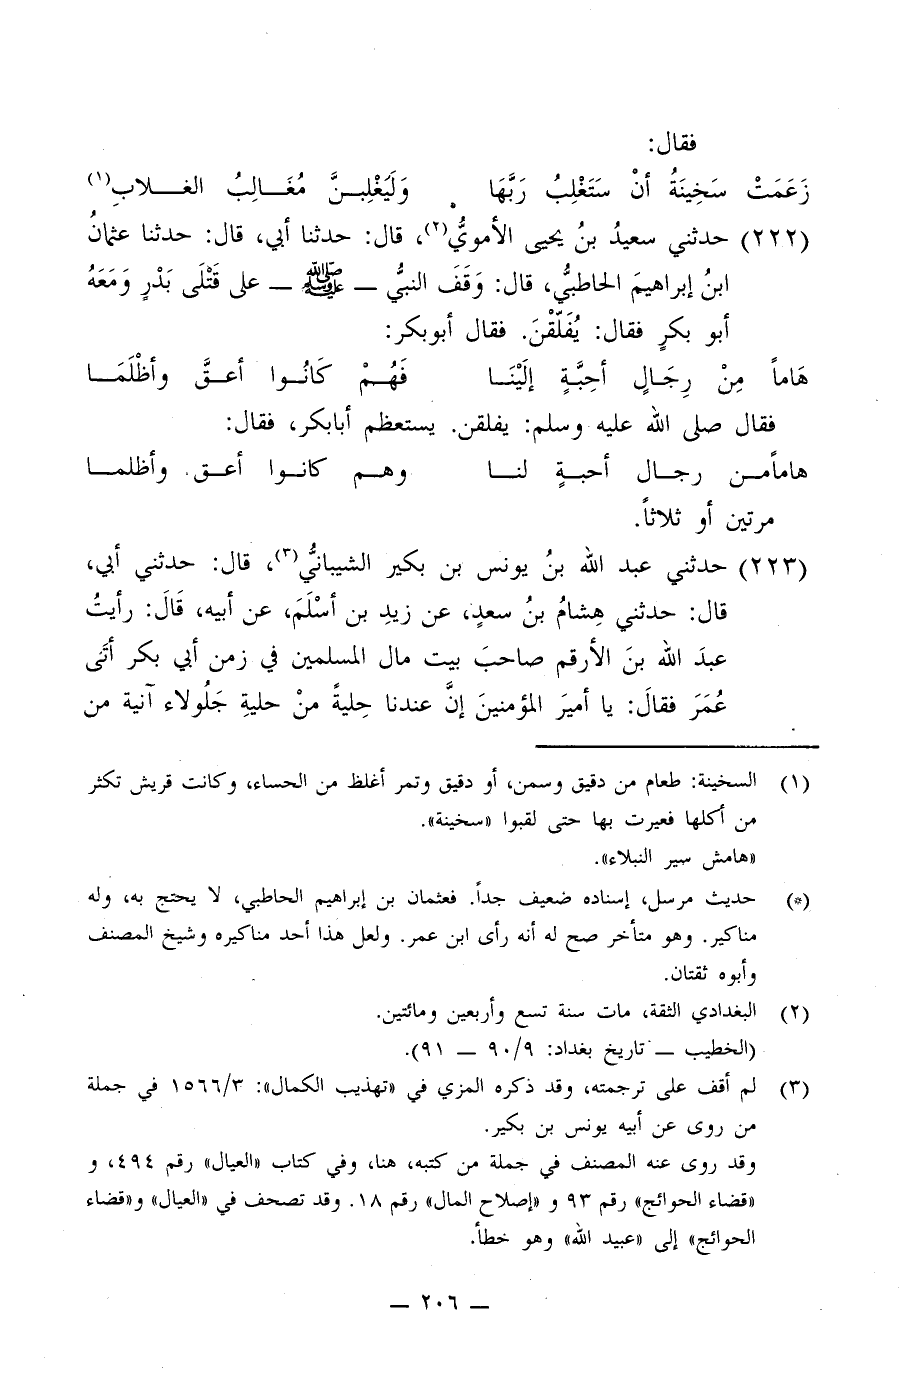 فقال:
زَعَمَتْ سَخِينَةُ أنْ سَتَغْلِبُ رَبَّهَا وَلَيَغْلِبنَّ مُغَالِبُ الغلابِ(١)
(٢٢٢) حدثني سعيدُ بنُ يحيى الأمويُّ(٢)، قال: حدثنا أبي، قال: حدثنا عثمانُ
ابنُ إبراهيمَ الحاطبيُّ، قال: وَقَفَ النبيُّ — ﷺ — على قَتْلَى بَدْرٍ وَمَعَهُ
أبو بكرٍ فقال: يُفَلّقْنَ. فقال أبوبكر:
هَاماً مِنْ رِجَالٍ أحِبَّةٍ إلَيْنَا فَهُمْ كَانُوا أعقَّ وأظْلَمَا
فقال صلى الله عليه وسلم: يفلقن. يستعظم أبابكر، فقال:
هاماًمن رجال أحبةٍ لنا وهم كانوا أعق. وأظلما
مرتين أو ثلاثاً.
(٢٢٣) حدثني عبد الله بنُ يونس بن بكير الشيبانيُّ(٣)، قال: حدثني أبي،
قال: حدثني هِشامُ بنُ سعدٍ، عن زيدِ بن أسْلَمَ، عن أبيه، قَالَ: رأيتُ
عبدَ الله بنَ الأرقم صاحبَ بيت مال المسلمين في زمن أبي بكر أتَى
عُمَرَ فقالَ: يا أميرَ المؤمنينَ إنَّ عندنا حِليةً منْ حليةِ جَلُولاء آنية من
(١) السخينة: طعام من دقيق وسمن، أو دقيق وتمر أغلظ من الحساء، وكانت قريش تكثر
من أكلها فعيرت بها حتى لقبوا «سخينة».
«هامش سير النبلاء».
(*) حديث مرسل، إسناده ضعيف جداً. فعثمان بن إبراهيم الحاطبي، لا يحتج به، وله
مناكير. وهو متأخر صح له أنه رأى ابن عمر. ولعل هذا أحد مناكيره وشيخ المصنف
وأبوه ثقتان.
(٢) البغدادي الثقة، مات سنة تسع وأربعين ومائتين.
(الخطيب — تاريخ بغداد: ٩٠/٩ — ٩١).
(٣) لم أقف على ترجمته، وقد ذكره المزي في «تهذيب الكمال»: ١٥٦٦/٣ في جملة
من روى عن أبيه يونس بن بكير.
وقد روى عنه المصنف في جملة من كتبه، هنا، وفي كتاب «العيال» رقم ٤٩٤، و
«قضاء الحوائج» رقم ٩٣ و «إصلاح المال» رقم ١٨. وقد تصحف في «العيال» و«قضاء
الحوائج» إلى «عبيد الله» وهو خطأ.
— ٢٠٦ —